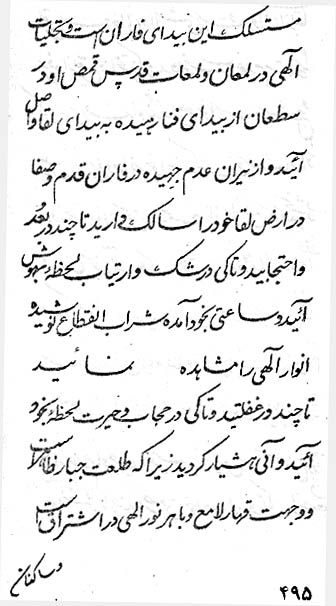 متسلک این بیدای فاران است و تجلیات
آلهی در لمعان و لمعات قدس قمص او در
سطعان از بیدای فنا رهیده به بیدای لقا واصل
آئید و از نیران عدم جهیده در فاران قدم وصفا
در ارض لقا خود را سالک دارید تا چند در بُعد
و احتجابید و تا کی در شک و ارتیاب لحظهٔ بهوش
آئید و ساعتی بخود آمده شراب انقطاع نوشیده
انوار آلهی را مشاهده نمائید
تا چند در غفلتید و تا کی در حجاب و حیرت لحظهٔ بخود
آئید و آنی هشیار گردید زیرا که طلعت جبار ظاهر است
و وجهت قهار لامع و باهر نور الهی در اشتراق است
و ساکنان
۴۹۵